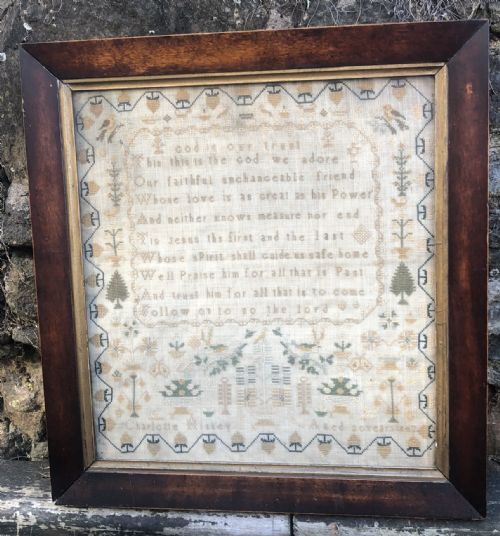 God is our trust
This this is the God we adore
Our faithful unchangeable friend
Whose love is as great as his Power
And neither knows measure nor end
Tis Jesus ths first and the last
Whose sPirit shall guide us safe home
Well Praise him for all that is Past
And trust him for all that is to come
Follow on to no the lord
Charlotte Aged